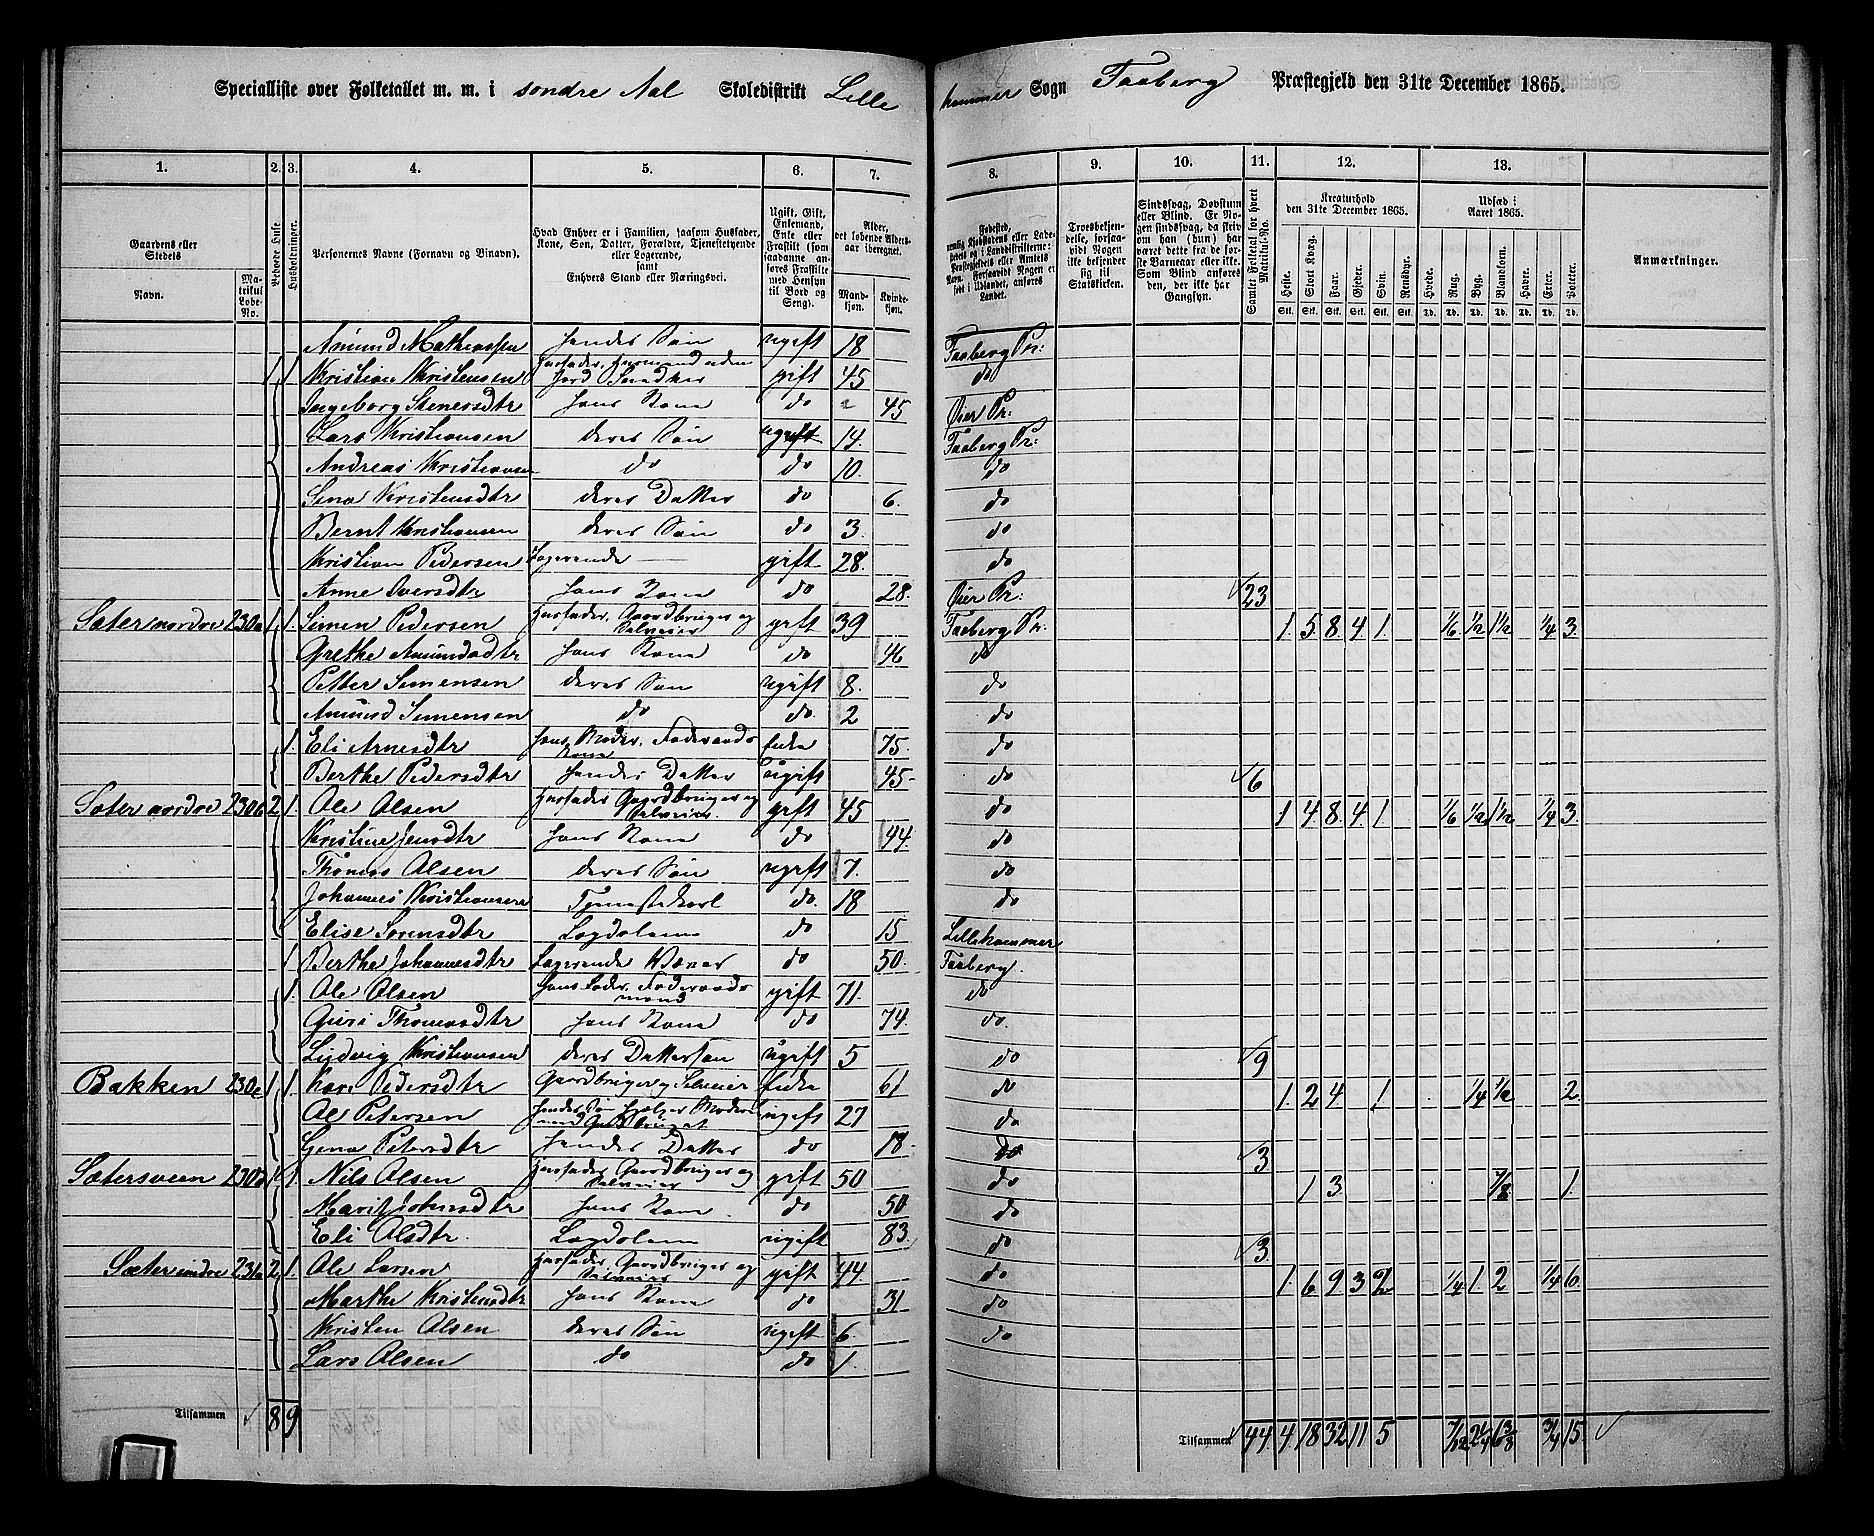 Specialliste over Folketallet m. m. i søndre Aal Skoledistrikt Lillehammer Sogn Faaberg Præstegjeld den 31te December 1865.
1. 2. 3. 4. 5. 6. 7. 8. 9. 10. 11. 12. 13.
Gaardens eller Stedets Navn. Matrikul Løbe-No. Beboede Huse Husholdninger. Personernes Navne (Fornavn og Binavn). Hvad Enhver er i Familien, saasom Husfader, Kone, Søn, Datter, Forældre, Tjenestetyende eller Logerende, samt Enhvers Stand eller Næringsvei. Ugift, Gift, Enkemand, Enke eller Fraskilt (som saadanne anføres Fraskilte med Hensyn til Bord og Seng). Alder, det løbende Alders-aar iberegnet. Mandkjøn. Kvindekjøn.
Fødested, Troesbekjendelse, forsaavidt Nogen ikke bekjender sig til Statskirken. Sindssvag, Døvstum eller Blind. Samlet Folketal for hvert Matrikul-No. Kreaturhold den 31te December 1865. Udsæd i Aaret 1865. Anmærkninger.
Heste. Stort Kvæg. Faar. Gjeder. Sviin. Rensdyr. Hvede. Rug. Byg. Blandkorn. Havre. Erter. Poteter.
Amund Mathiassen hendes Søn ugift 18 Faaberg Pr:
1 1. Kristian Kristensen Husfader, Husmand uden Jord Snedker gift 45 do
Ingeborg Stenersdtr hans Kone do 45 Øier Pr:
Lars Kristiansen deres Søn ugift 14. Faaberg Pr:
Andreas Kristiansen do do 10. do
Sina Kristensdtr deres Datter do 6. do
Bernt Kristiansen deres Søn do 3. do
Kristian Pedersen Logerende gift 28. do
Anne Iversdtr hans Kone do 28. Øier Pr: 23
Sæter nordre 230a 1 1. Simen Pedersen Husfader, Gaardbruger og Selveier gift 39 Faaberg Pr. 1. 5. 8. 4 1. 1/6 1/2 1 1/2 1/4 3.
Grethe Amundsdtr hans Kone do 46 do
Petter Simensen deres Søn ugift 8. do
Amund Simensen do do. 2 do
1. Eli Arnesdtr hans Moder, Føderaadskone Enke 75. do
Berthe Pedersdtr hendes Datter ugift 45 do 6
Sæter nordre 230b 2 1. Ole Olsen Husfader Gaardbruger og Selveier. gift 45 do 1 4. 8. 4 1. 1/6 1/2 1 1/2 1/4 3.
Kristine Jensdtr hans Kone do 44. do
Thomas Olsen deres Søn ugift 7. do
Johannes Kristiansen Tjenestekarl do. 18 do
Elise Sørensdtr Lægdslem do 15 Lillehammer
1 Berthe Johannesdtr Logerende Væver do 50. Faaberg.
1. Ole Olsen hans Fader, Føderaadsmand gift 71. do
Guri Thomasdtr hans Kone do 74. do.
Ludvig Kristiansen deres Dattersøn ugift 5 do 9
Bakken 230c 1 1. Kari Pedersdtr Gaardbruger og Selveier Enke 61 do 1. 2 4 1 1/4 1/2 2
Ole Petersen hendes Søn hjelper Moderen med Gaardsbruget ugift 27 do
Gina Petersdtr hendes Datter do 18. do 3
Sætersveen 230d 1 1. Nils Olsen Husfader Gaardbruger og Selveier gift 50 do 1 3. 7/8 1.
Marit Johnsdtr hans Kone do 50 do
Eli Olsdtr. Lægdslem ugift 83. do 3
Sæter søndre 231a 2 1. Ole Larsen Husfader, Gaardbruger og Selveier gift 44 do 1. 6 9 3 2 1/4 1. 2 1/4 6.
Marthe Kristensdtr hans Kone do 31 do
Kristen Olsen deres Søn ugift 6. do
Lars Olsen do do 1.
Tilsammen 8 9
Tilsammen 44 4 18 32 11 5 7/12 2 1/4 6 3/8 3/4 15.